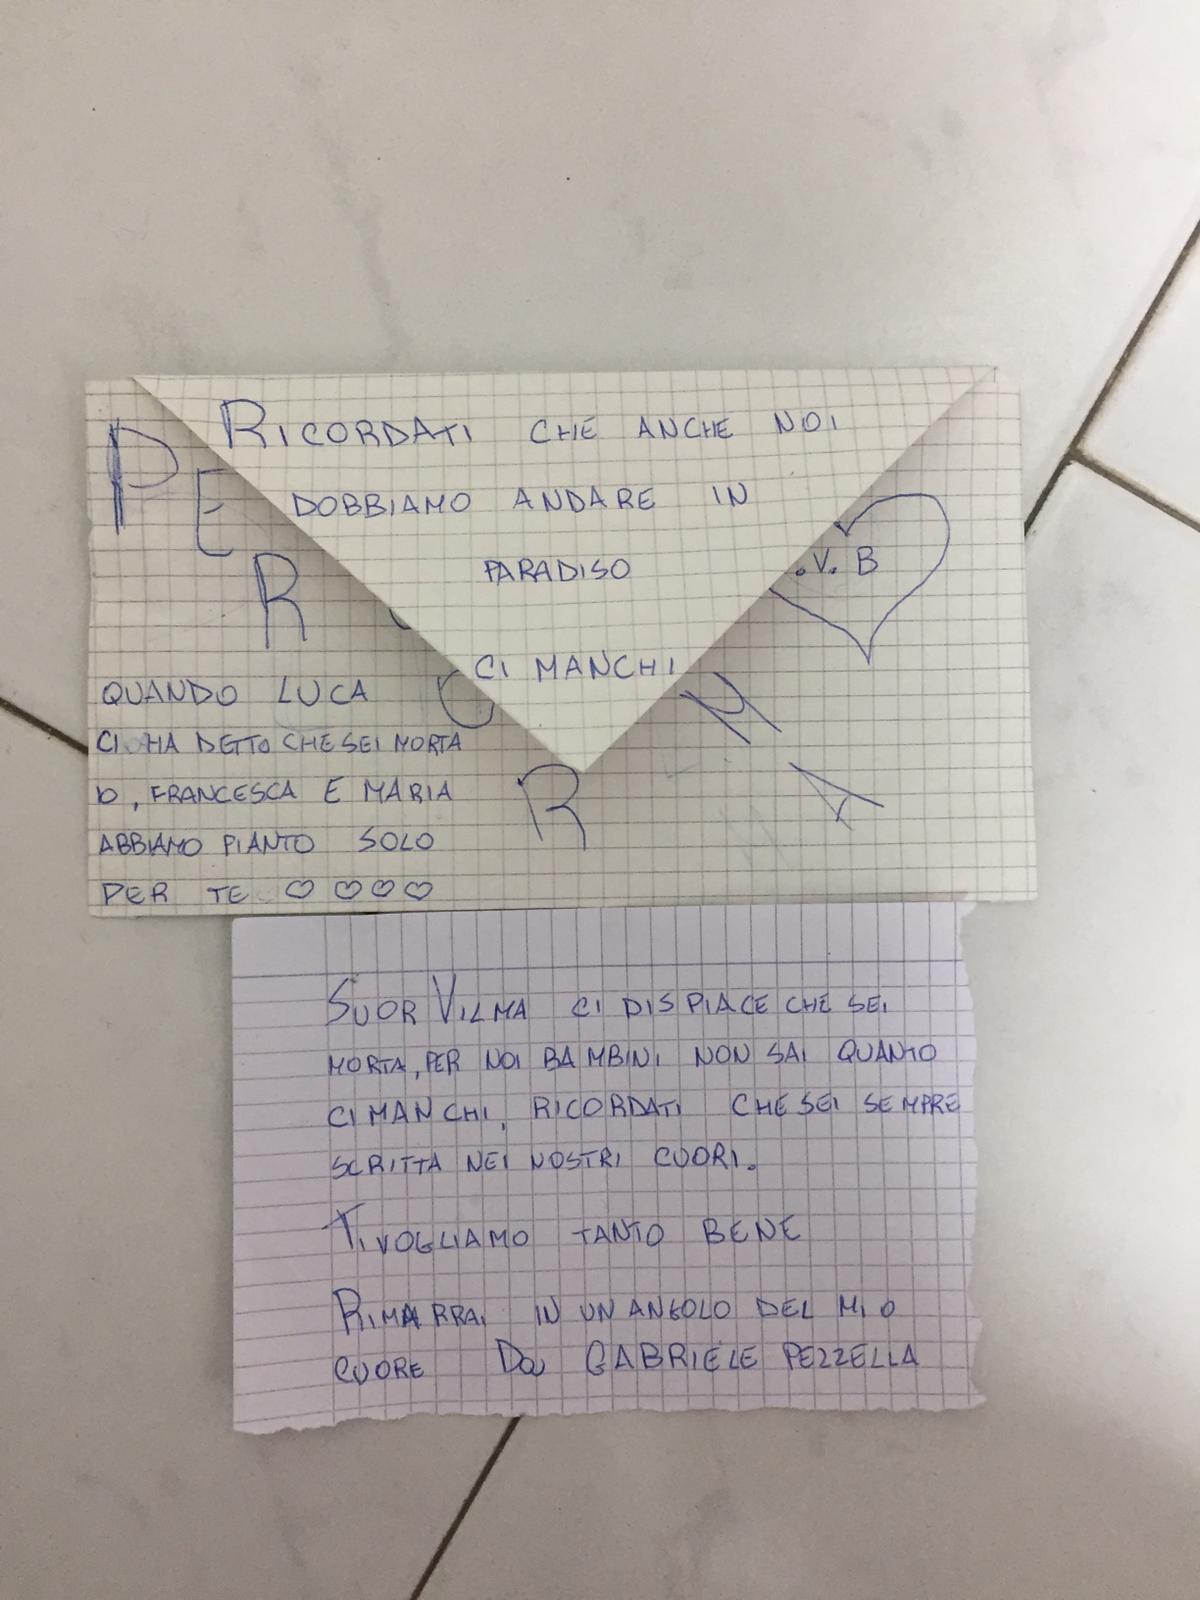 RICORDATI CHE ANCHE NOI
DOBBIAMO ANDARE IN
PARADISO
CI MANCHI
PER
R
MA
.V. B
QUANDO LUCA
CI HA DETTO CHE SEI MORTA
IO, FRANCESCA E MARIA
ABBIAMO PIANTO SOLO
PER TE ♡ ♡ ♡ ♡
SUOR VILMA CI DISPIACE CHE SEI
MORTA, PER NOI BAMBINI NON SAI QUANTO
CI MANCHI, RICORDATI CHE SEI SEMPRE
SCRITTA NEI NOSTRI CUORI.
TI VOGLIAMO TANTO BENE
RIMARRAI IN UN ANGOLO DEL MIO
CUORE Da GABRIELE PEZZELLA